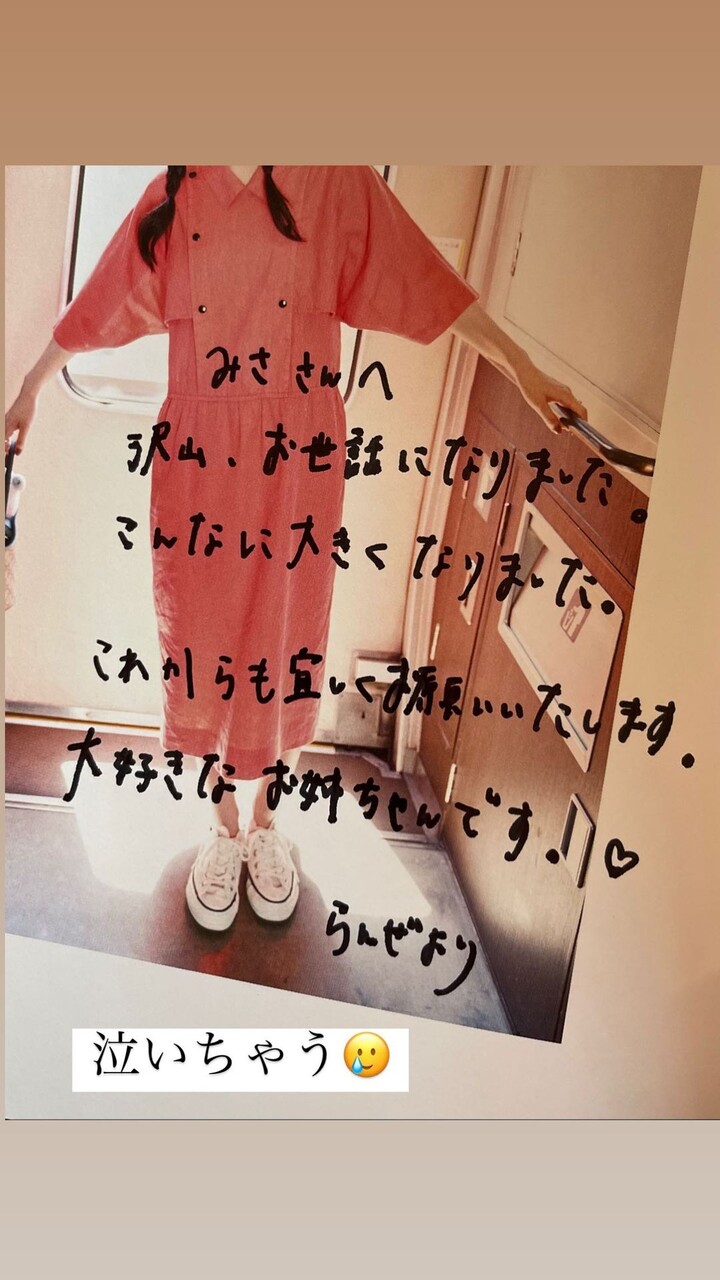 みささんへ
沢山、お世話になりました。
こんなに大きくなりました。
これからも宜しくお願いいたします。
大好きなお姉ちゃんです。♡
らんぜより
泣いちゃう🥲